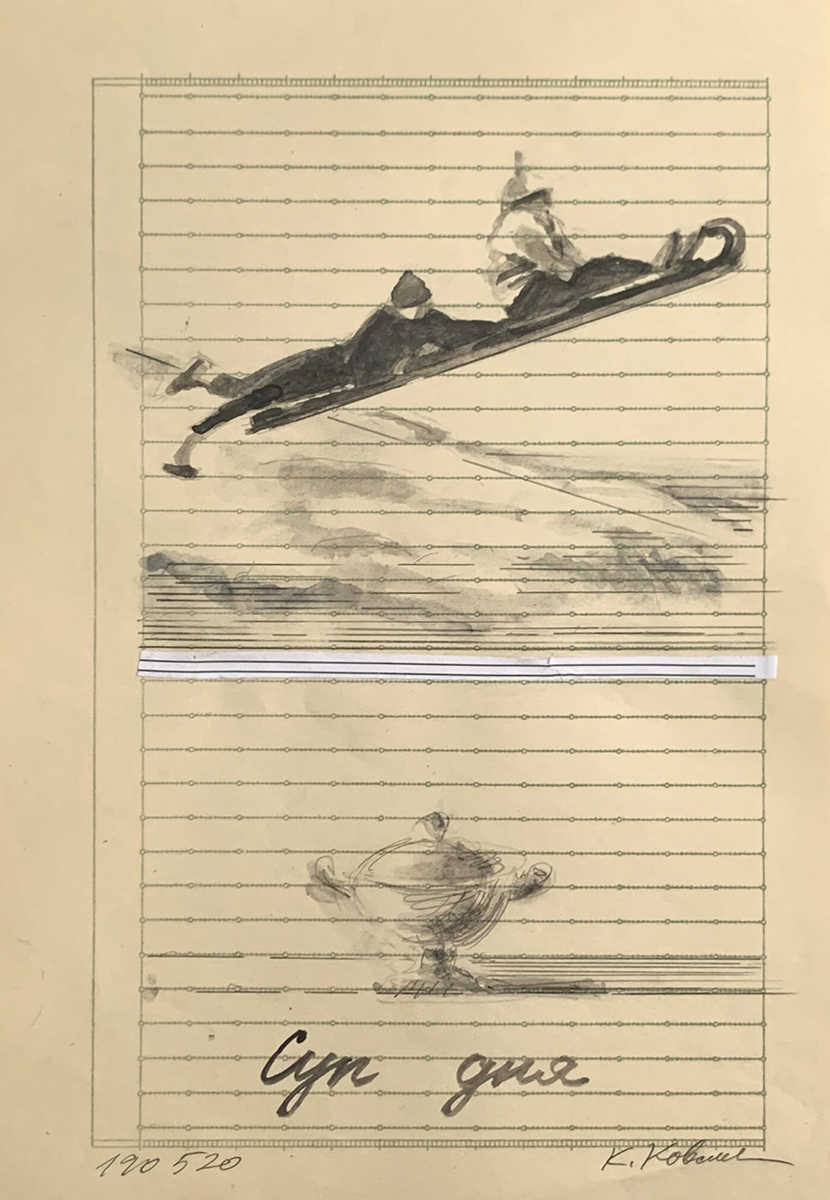 Суп дня
190520 К. Ковалев